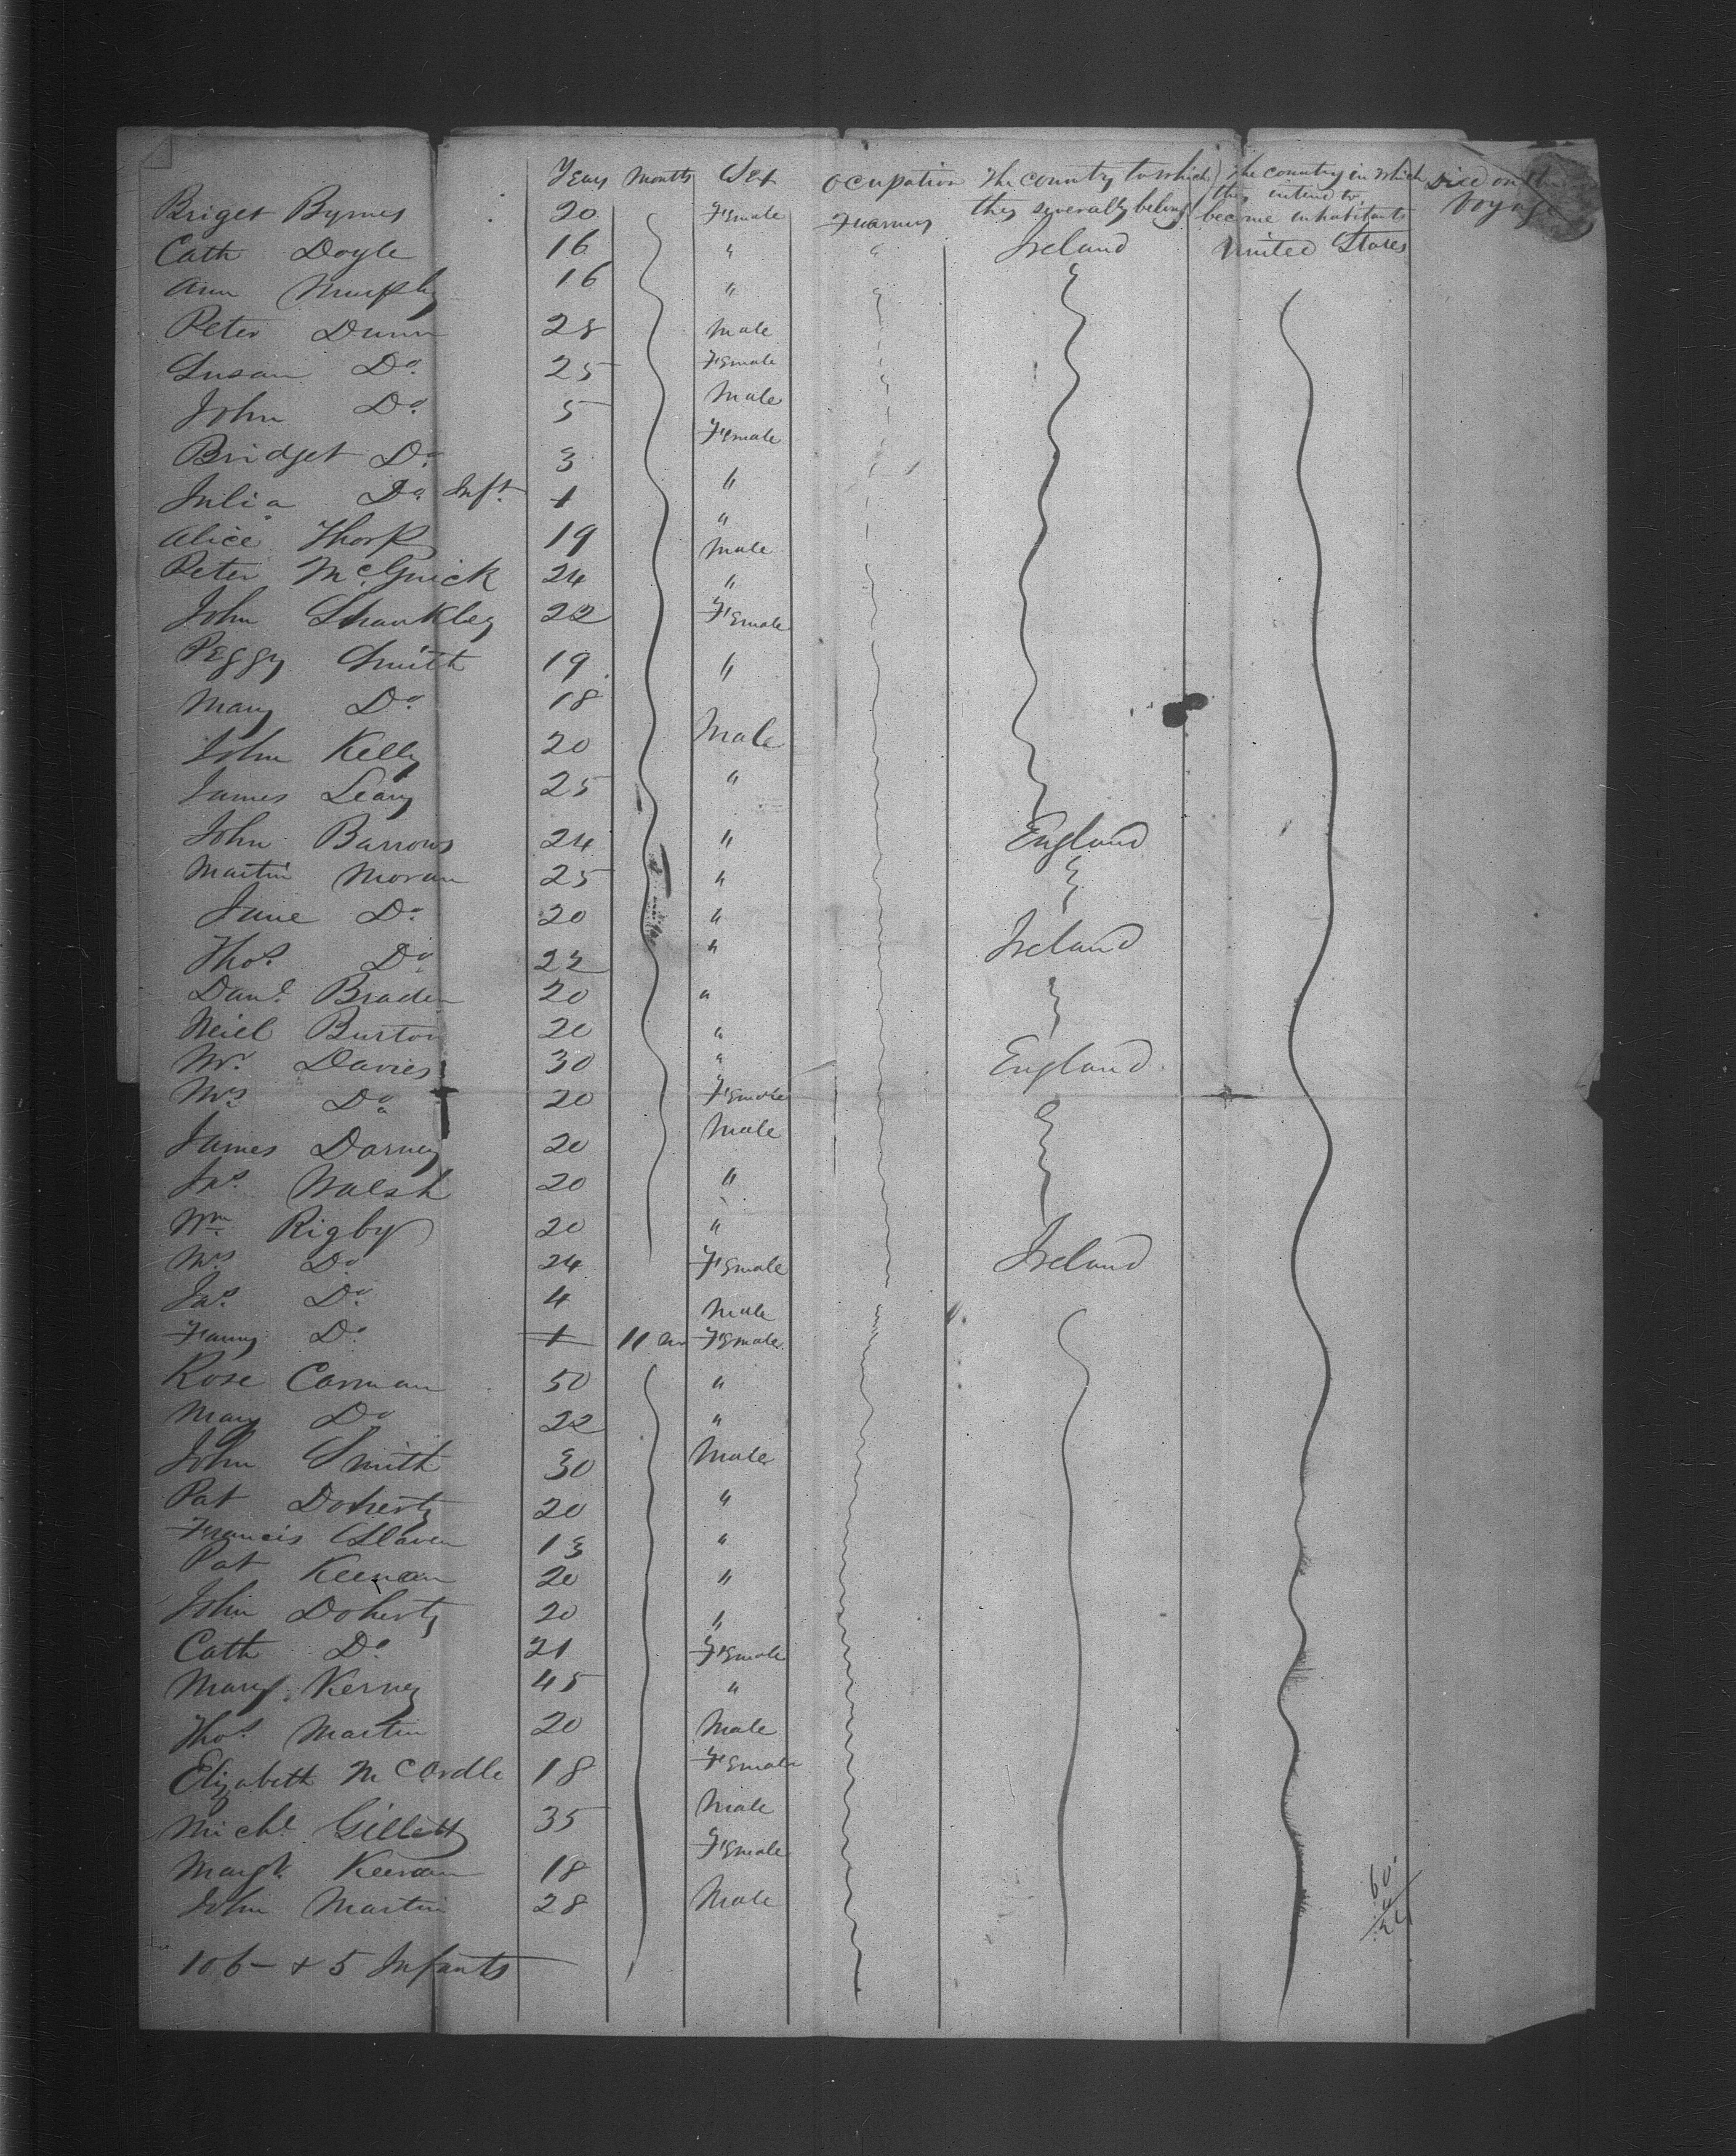 Years Months Sex Ocupation The country to which they severally belong The country in which they intend to become inhabitants Died on the Voyage
Briget Byrnes 20 Female Fuarmus
Cath Doyle 16 " " Ireland United States
Ann Murphy 16 "
Peter Dunn 28 Male
Susan Do. 25 Female
John Do. 5 Male
Bridget Do. 3 Female
Julia Do. Inft. 1 "
Alice Thorp 19 "
Peter McGuick 24 Male
John Shankley 22 "
Peggy Smith 19 Female
Mary Do. 18 "
John Kelly 20 Male
James Leary 25 "
John Barrows 24 " England
Martin Moran 25 "
Jane Do. 20 "
Thos. Do. 22 " Ireland
Danl. Braden 20 "
Neil Burton 20 "
Mr. Davies 30 " England
Mrs. Do. 20 Female
James Darney 20 Male
Jas. Walsh 20 "
Wm. Rigby 20 "
Mrs. Do. 24 Female Ireland
Jas. Do. 4 Male
Fanny Do. 1 11 m Female
Rose Carman 50 "
Mary Do 22 "
John Smith 30 Male
Pat Doherty 20 "
Francis Slaven 13 "
Pat Keenan 20 "
John Doherty 20 "
Cath Do. 21 Female
Mary Kerney 45 "
Thos. Martin 20 Male
Elizabeth McArdle 18 Female
Michl. Gillett 35 Male
Margt. Keenan 18 Female
John Martin 28 Male
106 - + 5 Infants
60